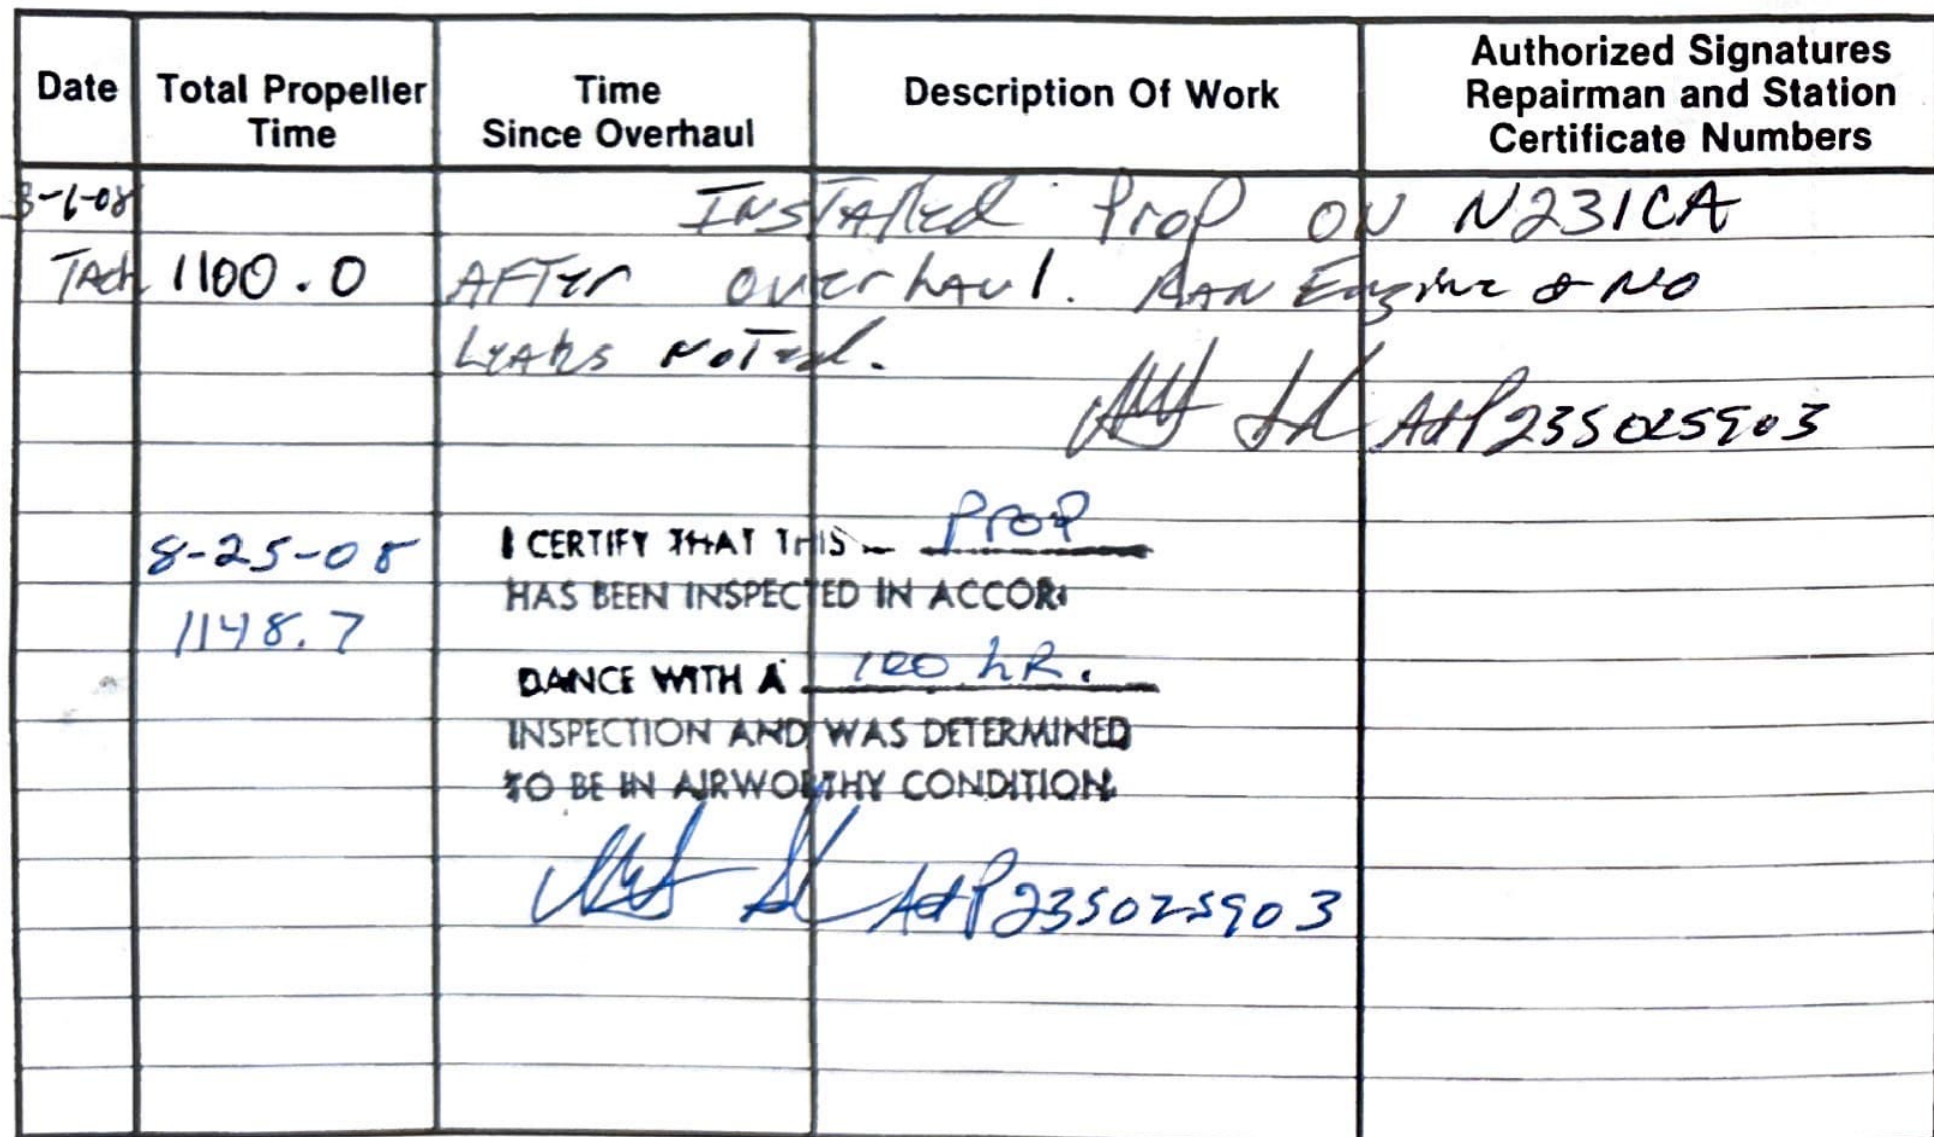 Date
Total Propeller
Time
Time
Since Overhaul
Description Of Work
Authorized Signatures
Repairman and Station
Certificate Numbers
3-6-08
Installed Prop on N231CA
Tach 1100.0 After overhaul. Ran Engine & No
Leaks Noted.
A&P235025903
8-25-08
I CERTIFY THAT THIS Prop
HAS BEEN INSPECTED IN ACCOR-
1148.7
DANCE WITH A 100 hR.
INSPECTION AND WAS DETERMINED
TO BE IN AIRWORTHY CONDITION.
A&P235025903